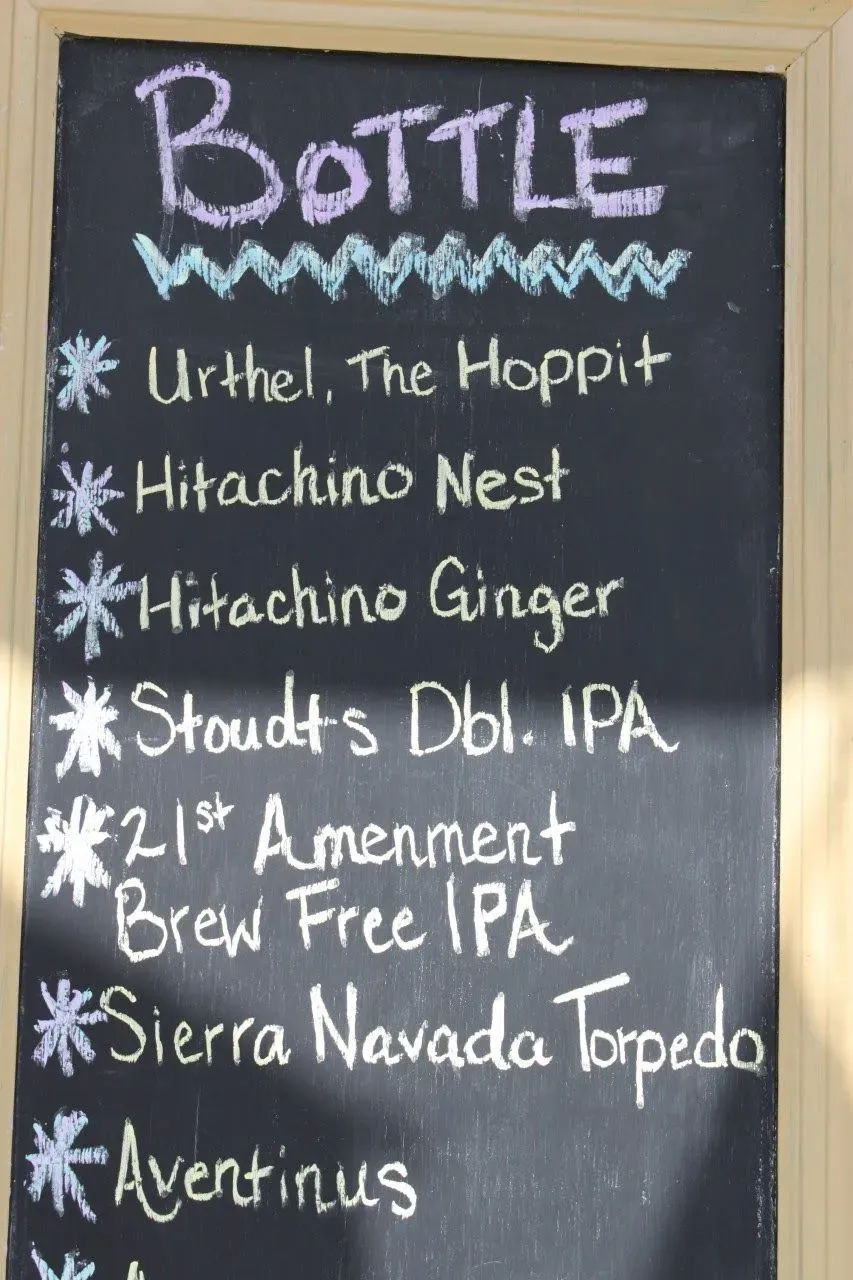 BOTTLE
Urthel, The Hoppit
Hitachino Nest
Hitachino Ginger
Stoudts Dbl. IPA
21st Amenment
Brew Free IPA
Sierra Navada Torpedo
Aventinus